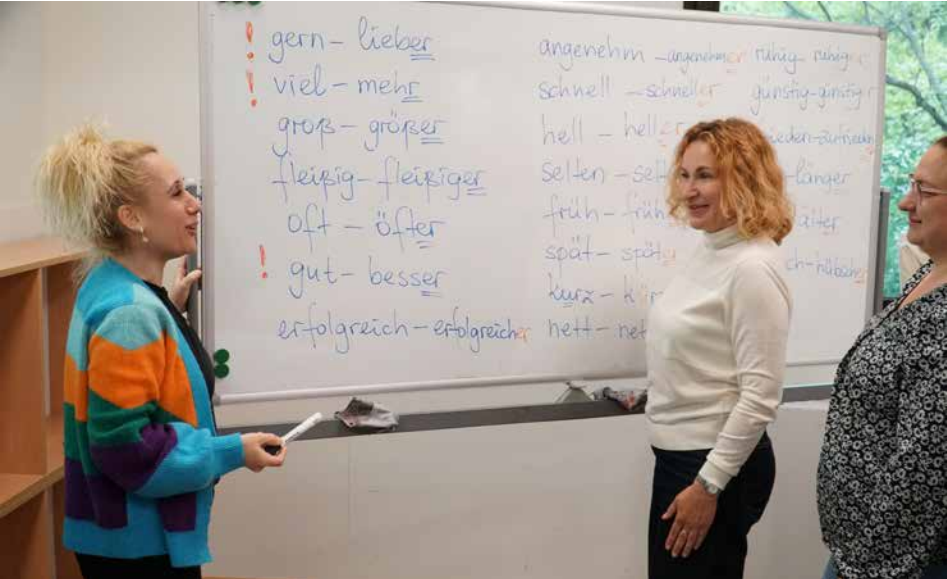 ! gern – lieber
! viel – mehr
groß – größer
fleißig – fleißiger
oft – öfter
! gut – besser
erfolgreich – erfolgreicher
angenehm – angenehmer
schnell – schneller
hell – heller
selten –
früh – früh
spät – später
kurz –
nett –
ruhig – ruhiger
günstig – günstiger
länger
älter